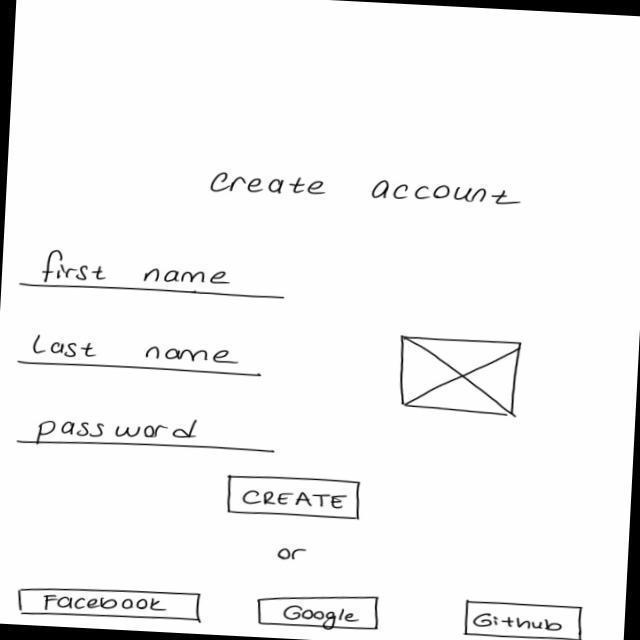 create account
first name
Last name
password
CREATE
or
Facebook
Google
Github